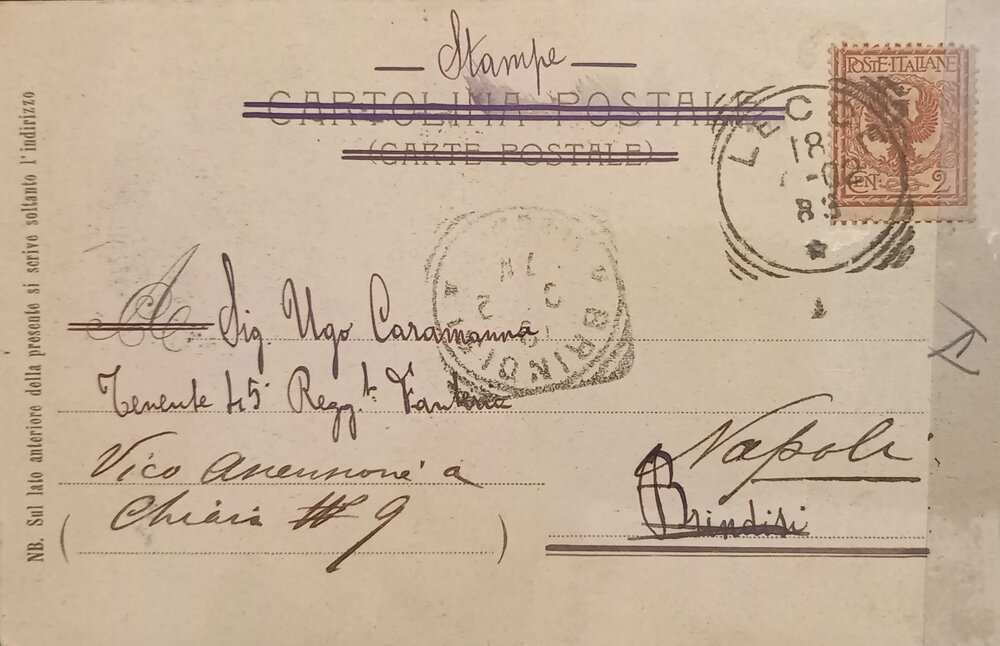 Stampe
CARTOLINA POSTALE
(CARTE POSTALE)
POSTE·ITALIANE
CEN. 2
LECCE
18
83
BRINDISI
A
Sig. Ugo Caramanna
Tenente 45 Regg.to Fanteria
Vico a
Chiaia 9
Napoli
Brindisi
NB. Sul lato anteriore della presente si scrive soltanto l'indirizzo